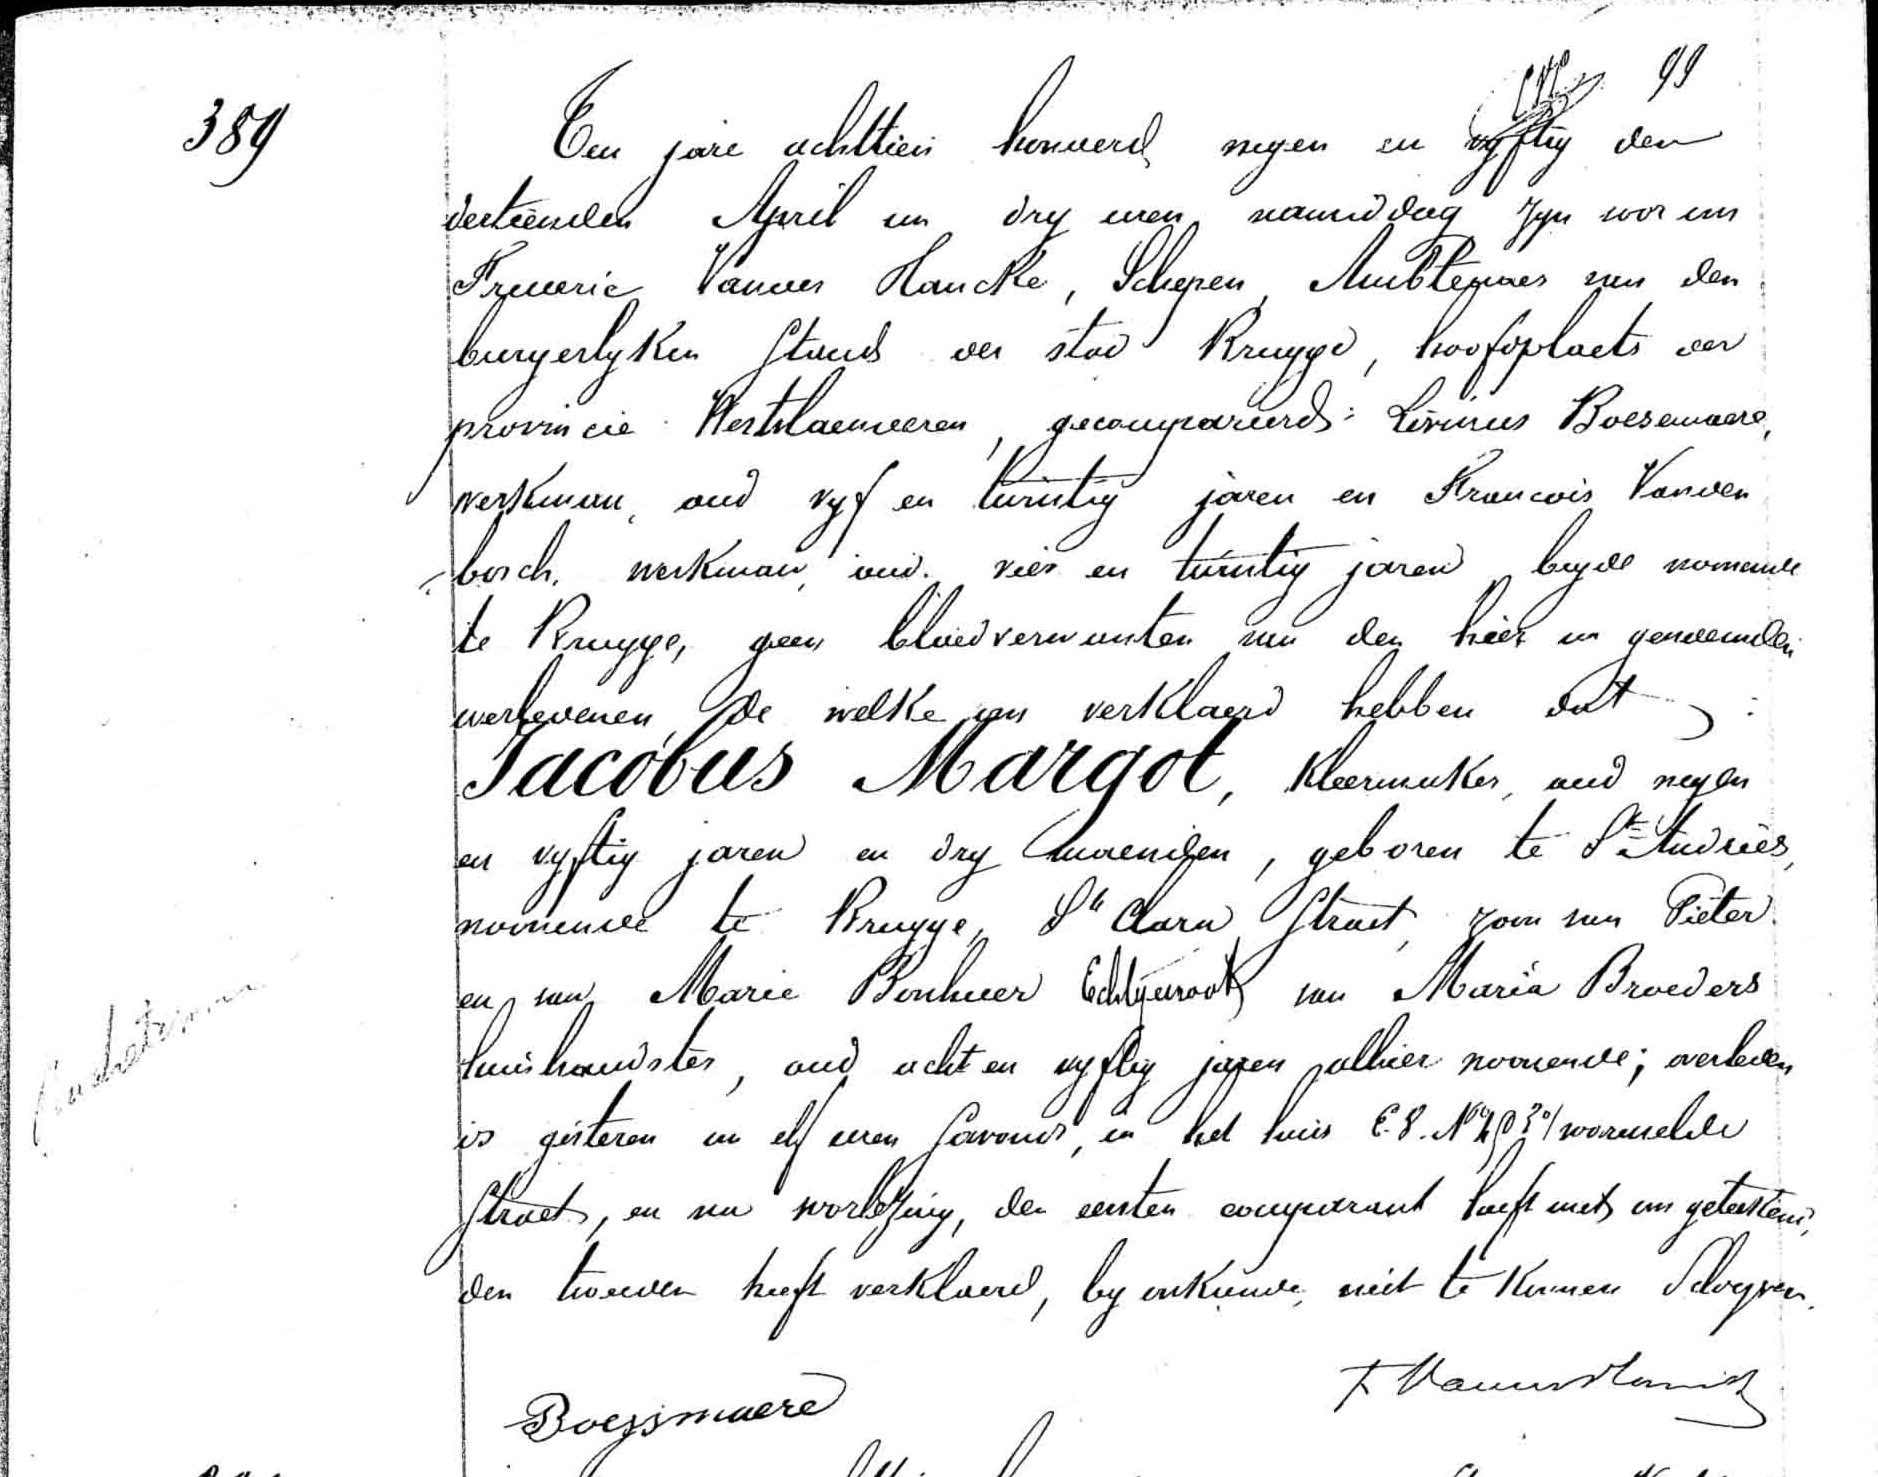 99
389
Ten jare achttien honderd negen en vyftig den
dertienden April om dry uren namiddag zyn voor ons
Frederic Vander Hancke, Schepen, Ambtenaer van den
burgerlyken Stand der stad Brugge, hoofdplaets der
provincie Westvlaenderen, gecompareerd: Livinus Boesemaere,
werkman, oud vyf en twintig jaren en Francois Vanden
bosch, werkman, oud vier en twintig jaren beyde woonende
te Brugge, geen bloedverwanten van den hier in genoemden
overledenen, de welke ons verklaerd hebben dat :
Jacobus Margot, kleermaker, oud negen
en vyftig jaren en dry maenden, geboren te St Andries,
woonende te Brugge, Ste Clara Straet, zoon van Pieter
en van Marie Bonheer Echtgenoot van Maria Broeders
huishoudster, oud acht en vyftig jaren alhier woonende; overleden
is gisteren om elf uren savonds, in het huis E. 8. No voormelde
Straet, en na voorlezing, den eersten comparant heeft met ons geteekend,
den tweeden heeft verklaerd, by onkunde, niet te kunnen Schryven.
F Vander Hancke
Boesmaere